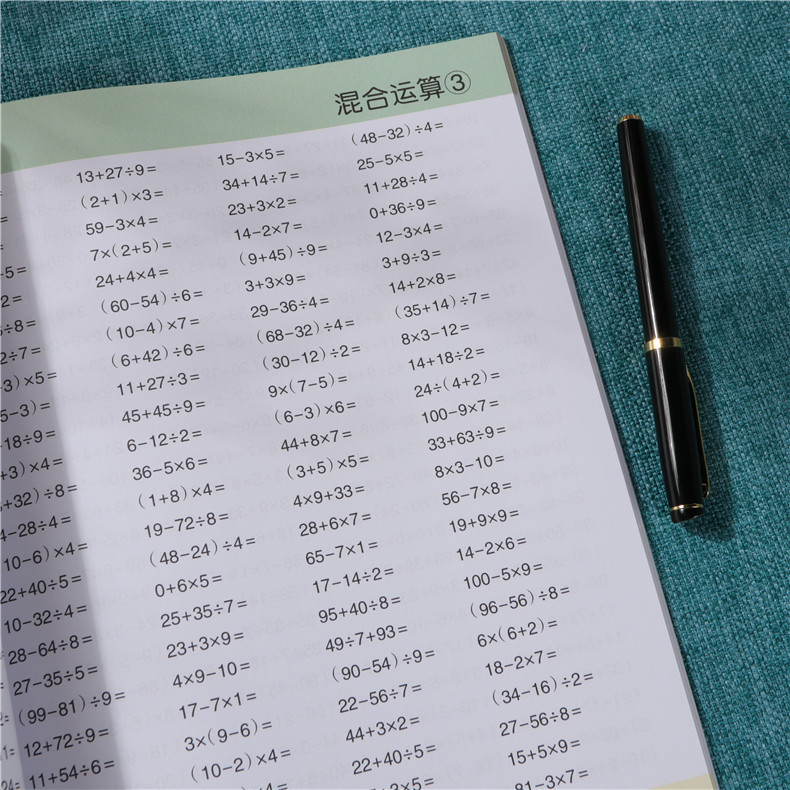 混合运算③
-5=
2=
÷8=
2÷7=
3)×5=
5-3)=
-18÷9=
+3)×4=
+32)÷8=
4-28÷4=
10-6)×4=
22+40÷5=
10-32÷4=
28-64÷8=
27-35÷5=
(99-81)÷9=
12+72÷9=
11+54÷6=
13+27÷9=
(2+1)×3=
59-3×4=
7×(2+5)=
24+4×4=
(60-54)÷6=
(10-4)×7=
(6+42)÷6=
11+27÷3=
45+45÷9=
6-12÷2=
36-5×6=
(1+8)×4=
19-72÷8=
(48-24)÷4=
0+6×5=
25+35÷7=
23+3×9=
4×9-10=
17-7×1=
3×(9-6)=
(10-2)×4=
15-3×5=
34+14÷7=
23+3×2=
14-2×7=
(9+45)÷9=
3+3×9=
29-36÷4=
(68-32)÷4=
(30-12)÷2=
9×(7-5)=
(6-3)×6=
44+8×7=
(3+5)×5=
4×9+33=
28+6×7=
65-7×1=
17-14÷2=
95+40÷8=
49÷7+93=
(90-54)÷9=
22-56÷7=
44+3×2=
22+40÷5=
(48-32)÷4=
25-5×5=
11+28÷4=
0+36÷9=
12-3×4=
3+9÷3=
14+2×8=
(35+14)÷7=
8×3-12=
14+18÷2=
24÷(4+2)=
100-9×7=
33+63÷9=
8×3-10=
56-7×8=
19+9×9=
14-2×6=
100-5×9=
(96-56)÷8=
6×(6+2)=
18-2×7=
(34-16)÷2=
27-56÷8=
15+5×9=
81-3×7=